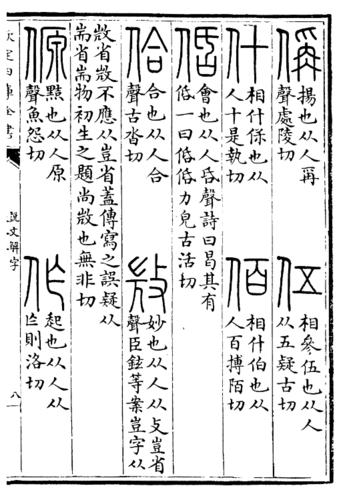 偁
揚也从人爯
聲處陵切
伍
相參伍也从人
从五疑古切
什
相什保也从
人十是執切
佰
相什伯也从
人百摶陌切
佸
會也从人𠯑聲詩曰曷其有
佸一曰佸佸力皃古活切
佮
合也从人合
聲古沓切
𢼸
妙也从人从攴豈省
聲臣鉉等案豈字从
𢼸省𢼸不應从豈省蓋傳寫之誤疑从
耑省耑物初生之題尚𢼸也無非切
傆
黠也从人原
聲魚怨切
作
起也从人从
亾則洛切
欽定四庫全書
說文解字
八